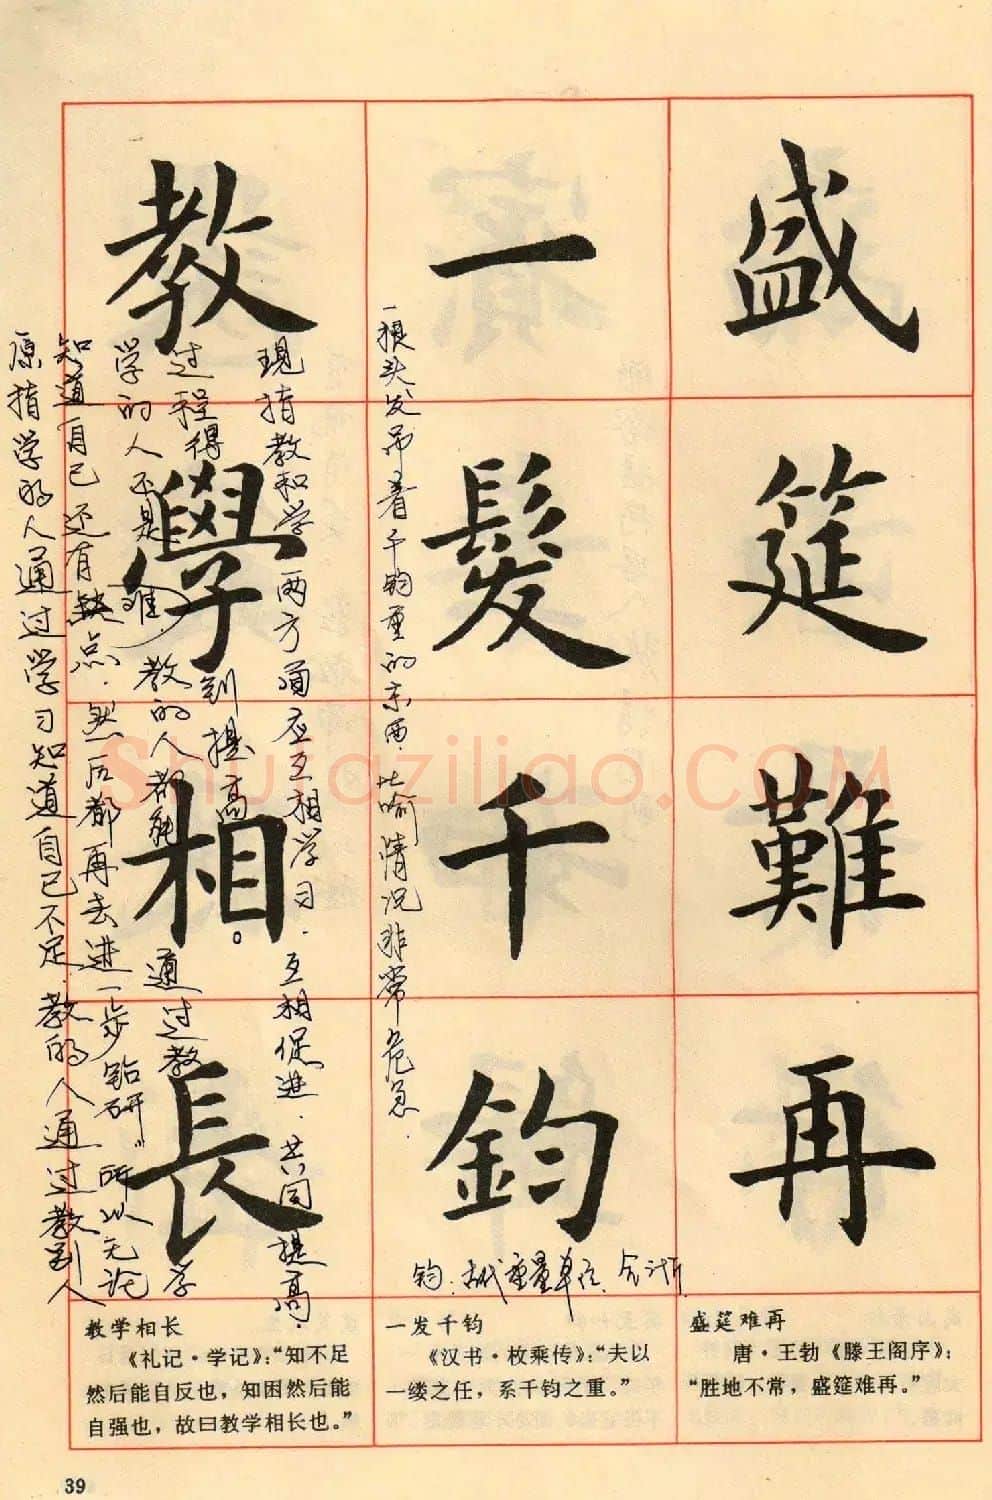 盛筵難再
一髮千鈞
教學相長
一根头发吊着千钧重的东西.比喻情况非常危急.
钧.古代重量单位.合 斤
原指学的人通过学习知道自己不足.教的人通过教别人
知道自己还有缺点.然后都再去进一步钻研"所以无论
学的人还是教的人都能通过教学
过程得到提高
现指教和学两方面应互相学习.互相促进.共同提高.
盛筵难再
唐·王勃《滕王阁序》：
“胜地不常，盛筵难再。”
一发千钧
《汉书·枚乘传》：“夫以
一缕之任，系千钧之重。”
教学相长
《礼记·学记》：“知不足
然后能自反也，知困然后能
自强也，故曰教学相长也。”
39
Shufaziliao.COM